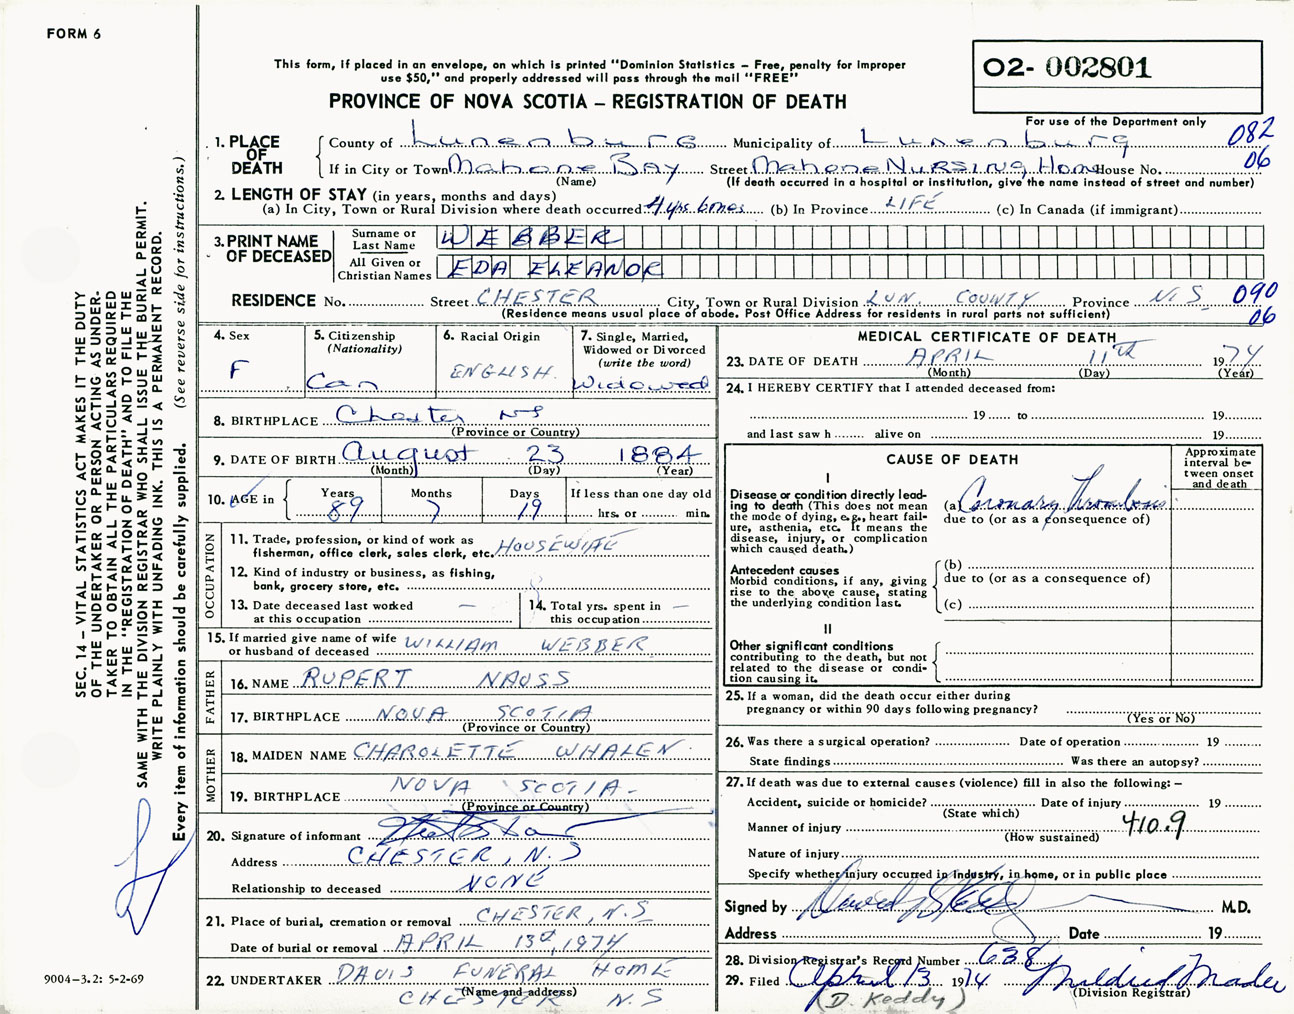 FORM 6
This form, if placed in an envelope, on which is printed "Dominion Statistics – Free, penalty for improper
use $50," and properly addressed will pass through the mail "FREE"
PROVINCE OF NOVA SCOTIA – REGISTRATION OF DEATH
O2- 002801
For use of the Department only
082
06
1. PLACE OF DEATH
County of Lunenburg Municipality of Lunenburg
If in City or Town Mahone Bay Street Mahone Nursing Home House No.
(Name) (If death occurred in a hospital or institution, give the name instead of street and number)
2. LENGTH OF STAY (in years, months and days)
(a) In City, Town or Rural Division where death occurred 4 yrs 6 mos (b) In Province LIFE (c) In Canada (if immigrant)
3. PRINT NAME OF DECEASED
Surname or Last Name WEBBER
All Given or Christian Names EDA ELEANOR
RESIDENCE No. Street CHESTER City, Town or Rural Division LUN. COUNTY Province N.S 090
(Residence means usual place of abode. Post Office Address for residents in rural parts not sufficient) 06
4. Sex
F
5. Citizenship
(Nationality)
Can
6. Racial Origin
ENGLISH.
7. Single, Married,
Widowed or Divorced
(write the word)
Widowed
8. BIRTHPLACE Chester NS
(Province or Country)
9. DATE OF BIRTH August 23 1884
(Month) (Day) (Year)
10. AGE in
Years Months Days If less than one day old
89 7 19 hrs. or min.
OCCUPATION
11. Trade, profession, or kind of work as
fisherman, office clerk, sales clerk, etc. HOUSEWIFE
12. Kind of industry or business, as fishing,
bank, grocery store, etc.
13. Date deceased last worked
at this occupation –
14. Total yrs. spent in
this occupation –
15. If married give name of wife
or husband of deceased WILLIAM WEBBER
FATHER
16. NAME RUPERT NAUSS
17. BIRTHPLACE NOVA SCOTIA
(Province or Country)
MOTHER
18. MAIDEN NAME CHAROLETTE WHALEN
19. BIRTHPLACE NOVA SCOTIA-
(Province or Country)
20. Signature of informant
Address CHESTER, N.S
Relationship to deceased NONE
21. Place of burial, cremation or removal CHESTER, N.S
Date of burial or removal APRIL 13, 1974
22. UNDERTAKER DAVIS FUNERAL HOME
(Name and address)
CHESTER N.S
MEDICAL CERTIFICATE OF DEATH
23. DATE OF DEATH APRIL 11th 1974
(Month) (Day) (Year)
24. I HEREBY CERTIFY that I attended deceased from:
19 to 19
and last saw h alive on 19
CAUSE OF DEATH
Approximate
interval be-
tween onset
and death
I
Disease or condition directly lead-
ing to death (This does not mean
the mode of dying, e.g., heart fail-
ure, asthenia, etc. It means the
disease, injury, or complication
which caused death.)
(a) Coronary Thrombosis
due to (or as a consequence of)
Antecedent causes
Morbid conditions, if any, giving
rise to the above cause, stating
the underlying condition last.
(b)
due to (or as a consequence of)
(c)
II
Other significant conditions
contributing to the death, but not
related to the disease or condi-
tion causing it.
25. If a woman, did the death occur either during
pregnancy or within 90 days following pregnancy?
(Yes or No)
26. Was there a surgical operation? Date of operation 19
State findings Was there an autopsy?
27. If death was due to external causes (violence) fill in also the following: –
Accident, suicide or homicide? Date of injury 19
(State which)
Manner of injury 410.9
(How sustained)
Nature of injury
Specify whether injury occurred in industry, in home, or in public place
Signed by M.D.
Address Date 19
28. Division Registrar's Record Number 638
29. Filed April 13 1974 Mildred Mader
(Division Registrar)
(D. Keddy)
SEC. 14 – VITAL STATISTICS ACT MAKES IT THE DUTY
OF THE UNDERTAKER OR PERSON ACTING AS UNDER-
TAKER TO OBTAIN ALL THE PARTICULARS REQUIRED
IN THE "REGISTRATION OF DEATH" AND TO FILE THE
SAME WITH THE DIVISION REGISTRAR WHO SHALL ISSUE THE BURIAL PERMIT.
WRITE PLAINLY WITH UNFADING INK. THIS IS A PERMANENT RECORD.
Every item of information should be carefully supplied. (See reverse side for instructions.)
9004–3.2: 5-2-69